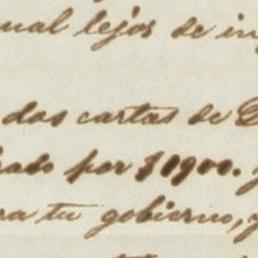 ual lejos de in
dos cartas de D
rado por $1900.
ra tu gobierno, y